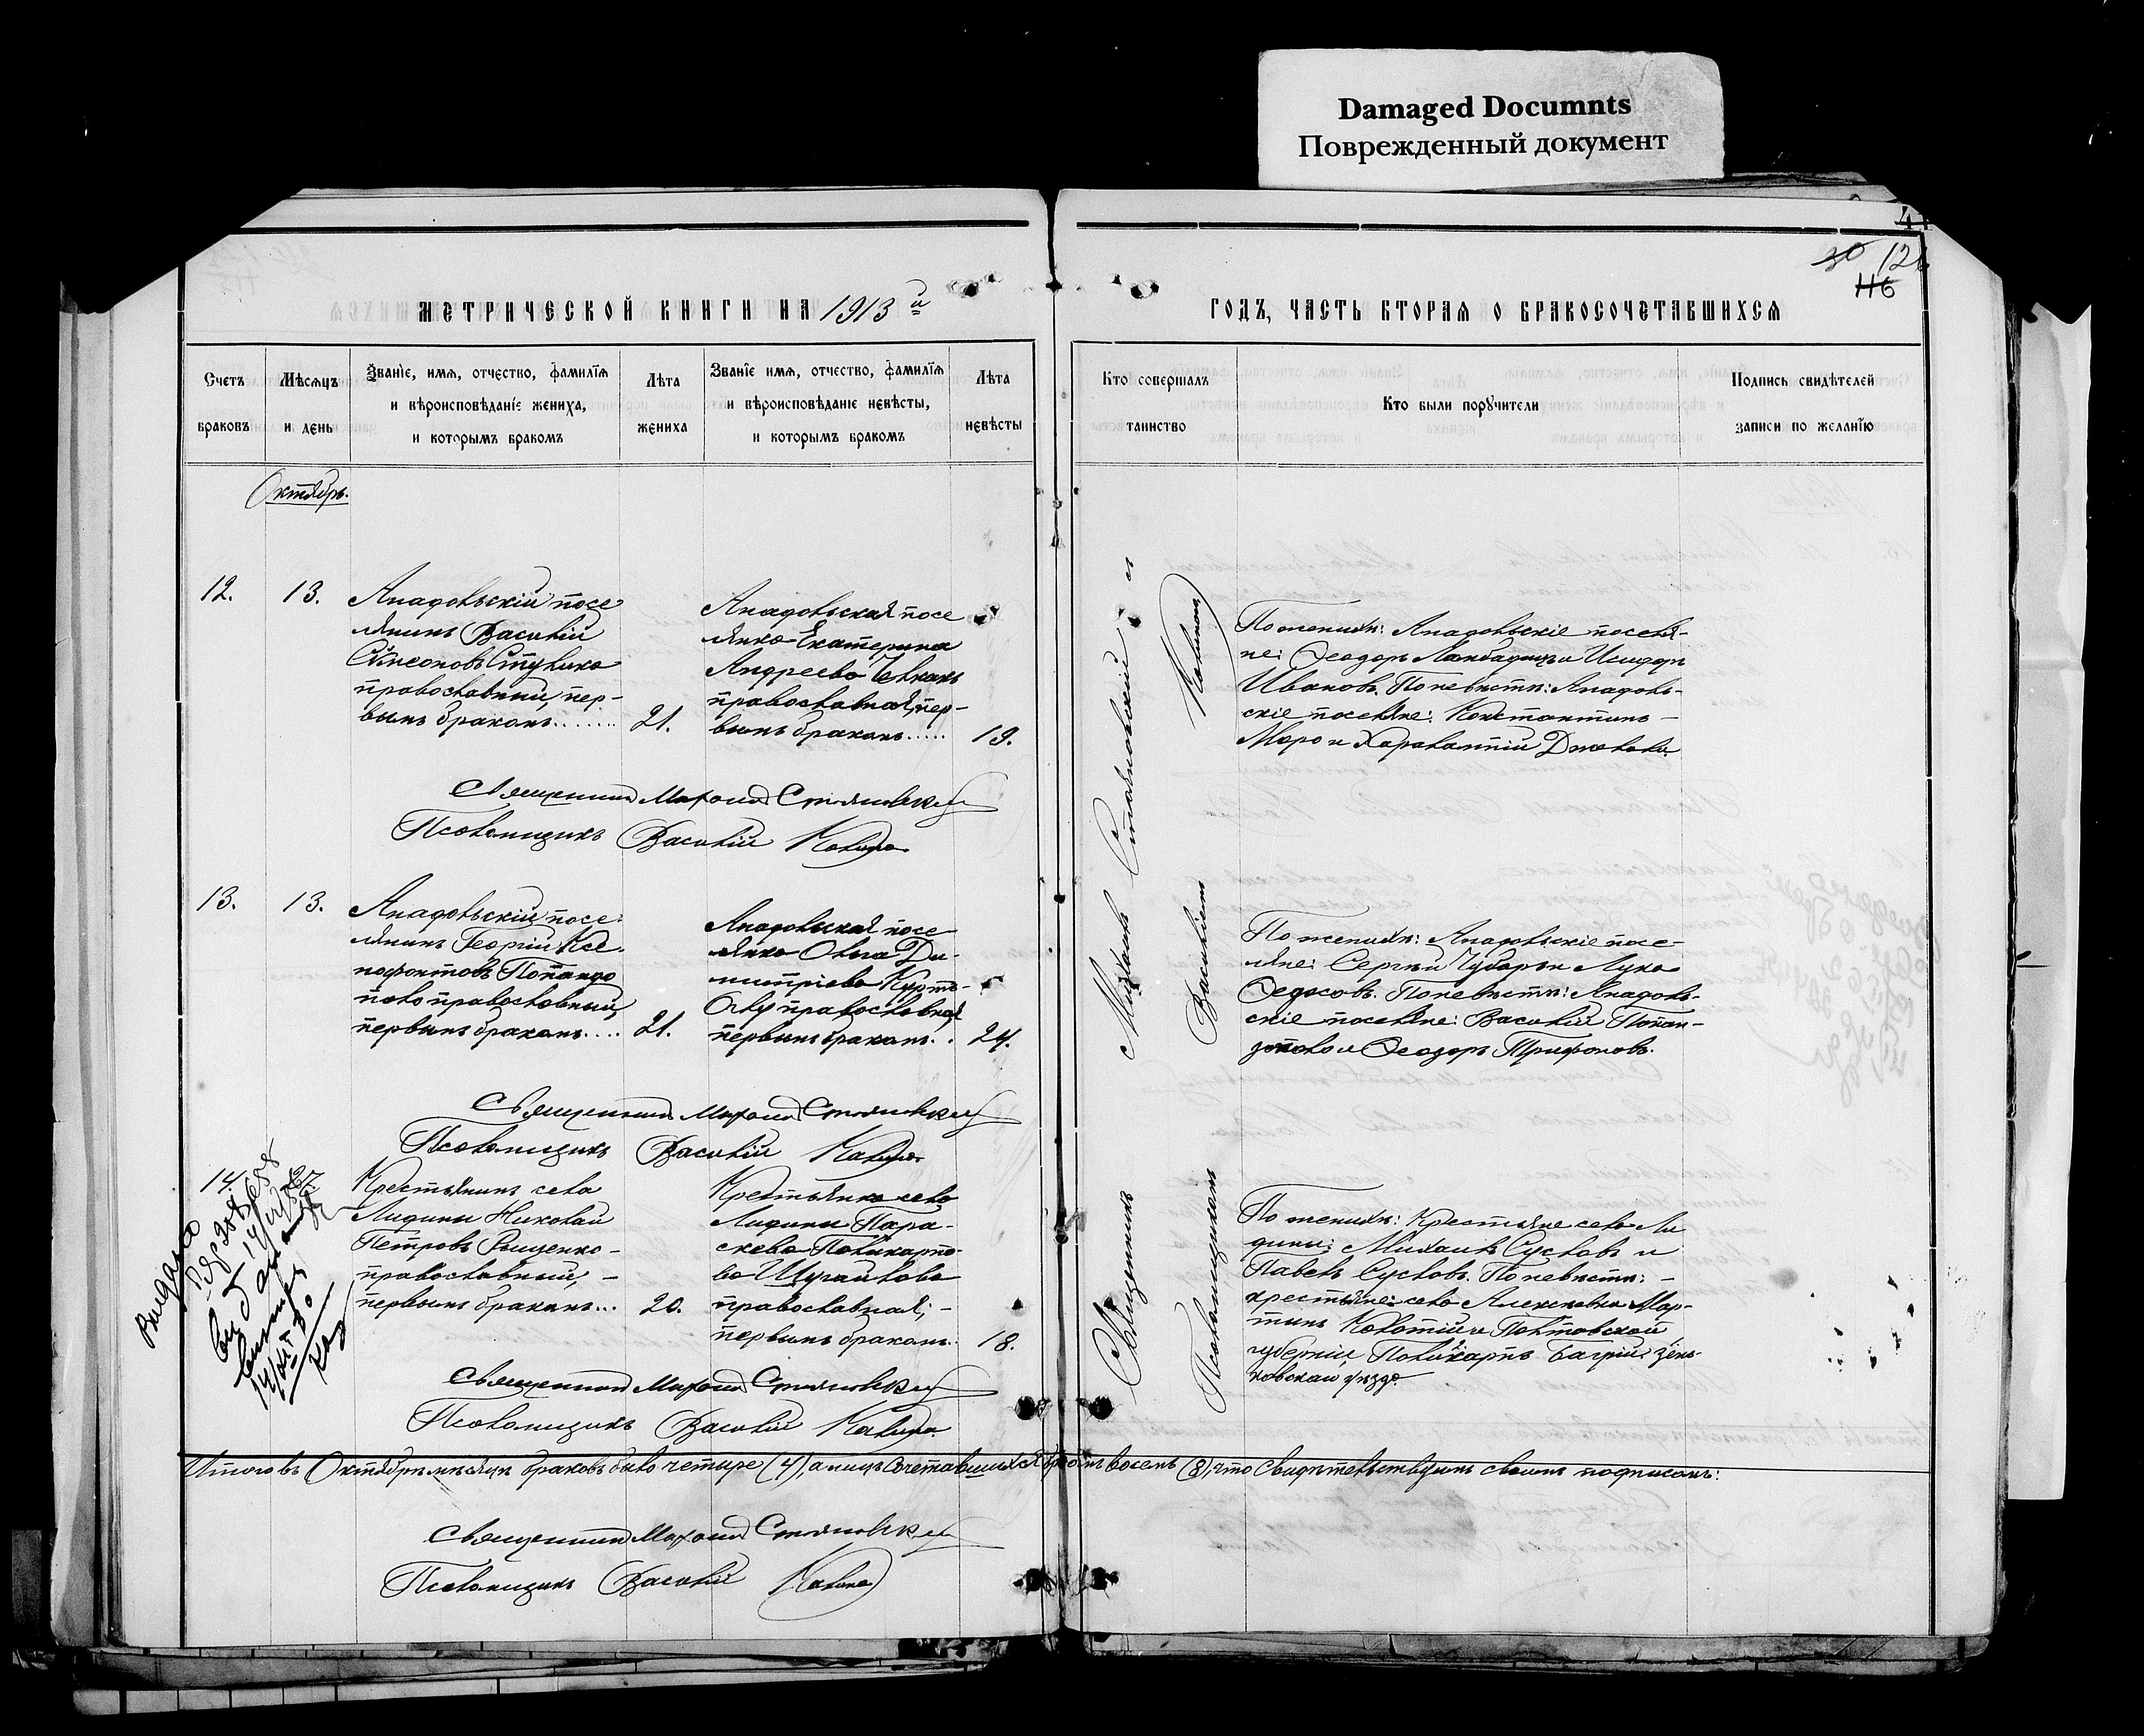 Damaged Documnts
Поврежденный документ
41
30 126
116
МЕТРИЧЕСКОЙ КНИГИ НА 1913й
ГОДЪ, ЧАСТЬ ВТОРАЯ О БРАКОСОЧЕТАВШИХСЯ
Счетъ браковъ
Мѣсяцъ и день
Званіе, имя, отчество, фамилія
и вѣроисповѣданіе жениха,
и которымъ бракомъ
Лѣта жениха
Званіе имя, отчество, фамилія
и вѣроисповѣданіе невѣсты,
и которымъ бракомъ
Лѣта невѣсты
Кто совершалъ таинство
Кто были поручители
Подпись свидѣтелей
записи по желанію
Октябрь.
12.
13.
Анадольскій посе
лянинъ Василій
Симеоновъ
православный, пер-
вымъ бракомъ.......
21.
Анадольская посе
лянка Екатерина
Андреева
православная, пер-
вымъ бракомъ.....
19.
По женихѣ: Анадольскіе поселя-
не: Ѳеодоръ и Исидоръ
Ивановъ. По невѣстѣ: Анадоль-
скіе поселяне: Константинъ
Моро и Харалампій
Священникъ Михаилъ Стояновскій
Псаломщикъ Василій
13.
13.
Анадольскій посе-
лянинъ Георгій Ксе-
нофонтовъ Попандо
пало православный,
первымъ бракомъ....
21.
Анадольская посе-
лянка Ольга Ди-
митріева Курть-
Оглу православная
первымъ бракомъ..
24.
По женихѣ: Анадольскіе посе-
ляне: Сергѣй Чубарь и Лука
Ѳедосовъ. По невѣстѣ: Анадоль-
скіе поселяне: Василій Попан-
допало и Ѳеодоръ Трифоновъ.
Священникъ Михаилъ Стояновскій
Псаломщикъ Василій
14.
27.
Крестьянинъ села
Лидины Николай
Петровъ
православный,
первымъ бракомъ...
20.
Крестьянка села
Лидины Пара-
скева Поликарпо-
ва Шугайлова
православная;
первымъ бракомъ.
18.
По женихѣ: Крестьяне села Ли
дины: Михаилъ Сусловъ и
Павелъ Сусловъ. По невѣстѣ:
крестьяне: села Алексѣевки Мар-
тинъ и Полтавской
губерніи, Поликарпъ Багрій Зѣнь-
ковскаи уѣзда.
Священникъ Михаилъ Стояновскій
Псаломщикъ Василій
Священникъ Михаилъ Стояновскій
Псаломщикомъ Василіемъ
Итого въ Октябрѣ мѣсяцѣ браковъ было четыре (4), а лицъ сочетавшихся бракомъ восемь (8), что свидѣтельствуемъ своимъ подписомъ:
Священникъ Михаилъ Стояновскій
Псаломщикъ Василій